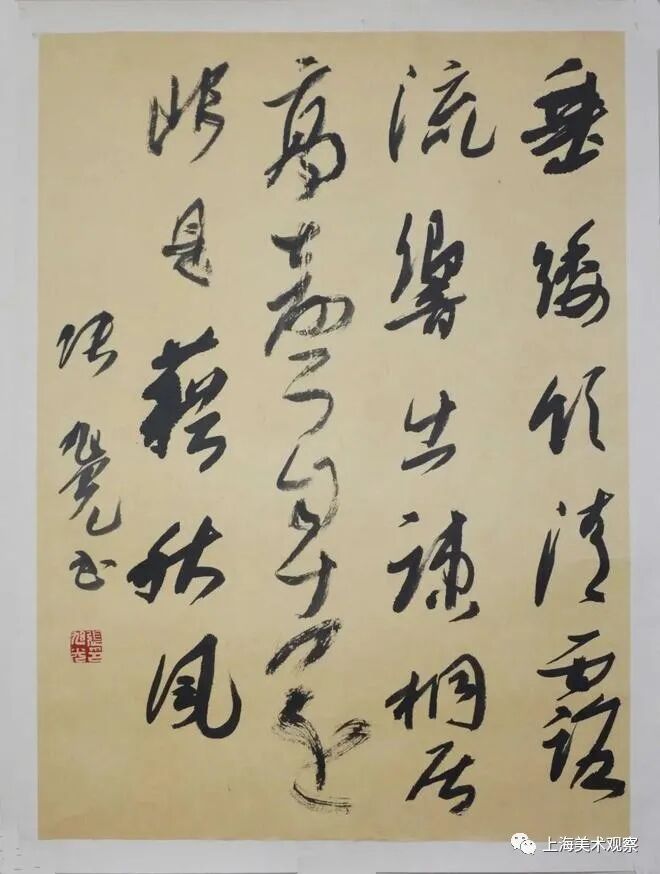 垂緌飲清露
流響出疎桐居
高聲自遠
非是藉秋風
張旭光書
上海美术观察